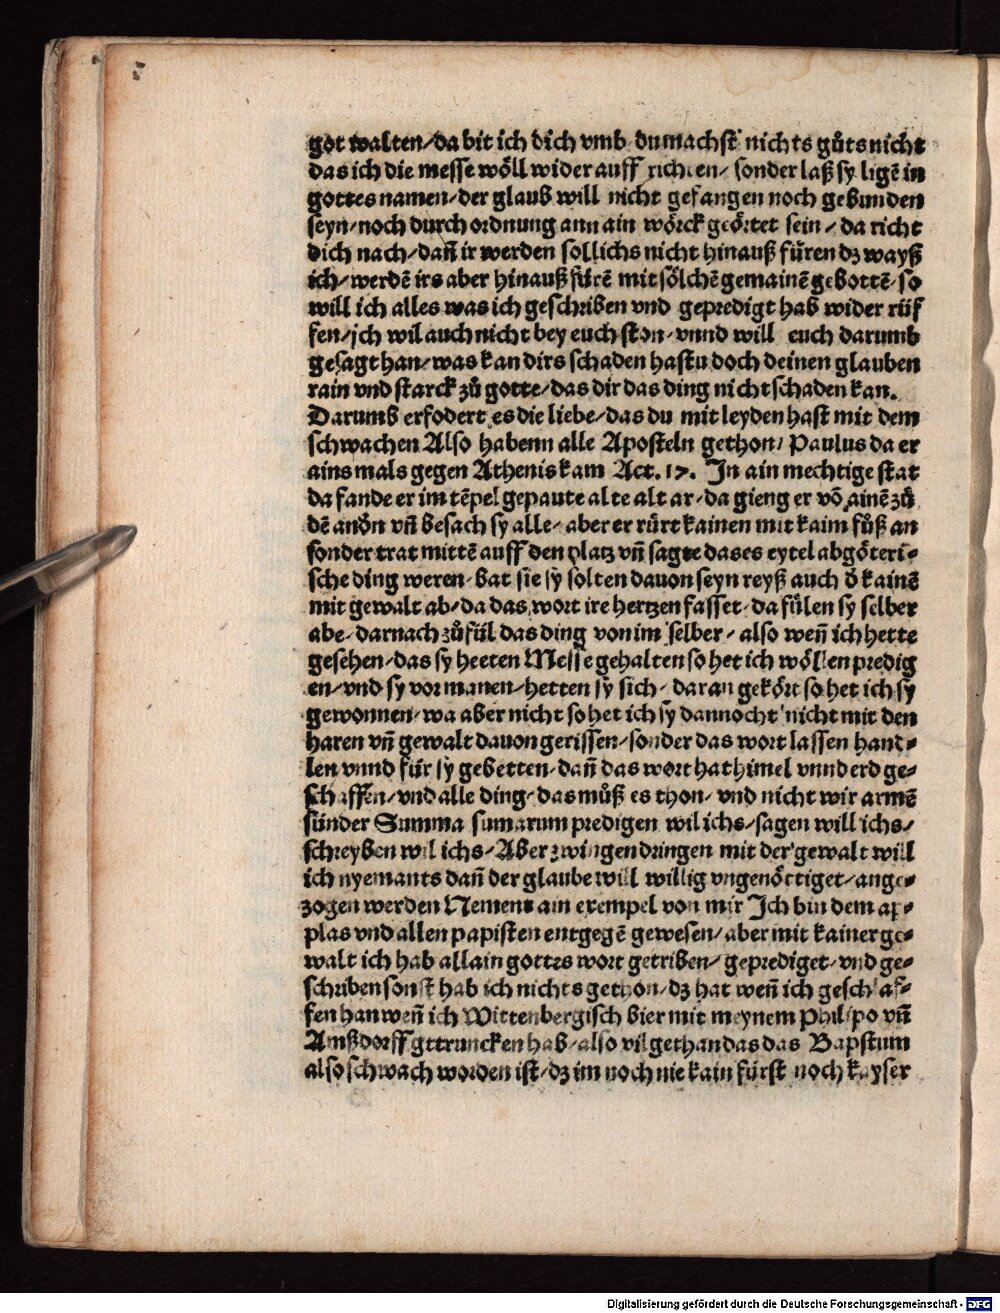 got walten/da bit ich dich vmb du machst nichts gůts nicht
das ich die messe wöll wider auff richten/ sonder laß sy ligē in
gottes namen/der glaub will nicht gefangen noch gebunden
seyn/noch durch ordnung ann ain wörck geörtet sein/ da richt
dich nach/dañ ir werden sollichs nicht hinauß füren dz wayß
ich/werdē irs aber hinauß fürē mit sölchē gemainē gebottē/so
will ich alles was ich geschriben vnd gepredigt hab wider rüf
fen/jch wil auch nicht bey euch ston/vnnd will euch darumb
gesagt han/was kan dirs schaden hastu doch deinen glauben
rain vnd starck zů gotte/das dir das ding nicht schaden kan.
Darumb erfodert es die liebe/das du mitleyden hast mit dem
schwachen Also habenn alle Aposteln gethon/ Paulus da er
ains mals gegen Athenis kam Act. 17. In ain mechtige stat
da fande er im tēpel gepaute alte altar/da gieng er vō ainē zů
dē andn̄ vñ besach sy alle/aber er rürt kainen mit kaim fůß an
sonder trat mittē auff den platz vñ sagte das es eytel abgöteri-
sche ding weren/bat sie sy solten dauon seyn reyß auch d̄ kainē
mit gewalt ab/da das wort ire hertzen fasset/da fülen sy selber
abe/darnach zůfül das ding von im selber/ also weñ ich hette
gesehen/das sy heeten Messe gehalten so het ich wöllen predig
en/vnd sy vormanen/hetten sy sich/ daran gekört so het ich sy
gewonnen/wa aber nicht so het ich sy dannocht nicht mit den
haren vñ gewalt dauon gerissen/sonder das wort lassen hand-
len vnnd für sy gebetten/dañ das wort hat himel vnnd erd ge-
schaffen/vnd alle ding/das můß es thon/vnd nicht wir armē
sünder Summa sumarum predigen wil ichs/sagen will ichs/
schreyben wil ichs/Aber zwingen dringen mit der gewalt will
ich nyemants dañ der glaube will willig vngenöttiget/ange-
zogen werden Nement ain exempel von mir Ich bin dem ap-
plas vnd allen papisten entgegē gewesen/aber mit kainer ge-
walt ich hab allain gottes wort getriben/geprediget/vnd ge-
schriben sonst hab ich nichts gethon/dz hat weñ ich geschlaf-
fen han weñ ich Wittenbergisch bier mit meynem Philipo vñ
Amßdorff gttruncken hab/also vil gethan das das Bapstum
also schwach worden ist/dz im noch nie kain fürst noch kayser
Digitalisierung gefördert durch die Deutsche Forschungsgemeinschaft - DFG